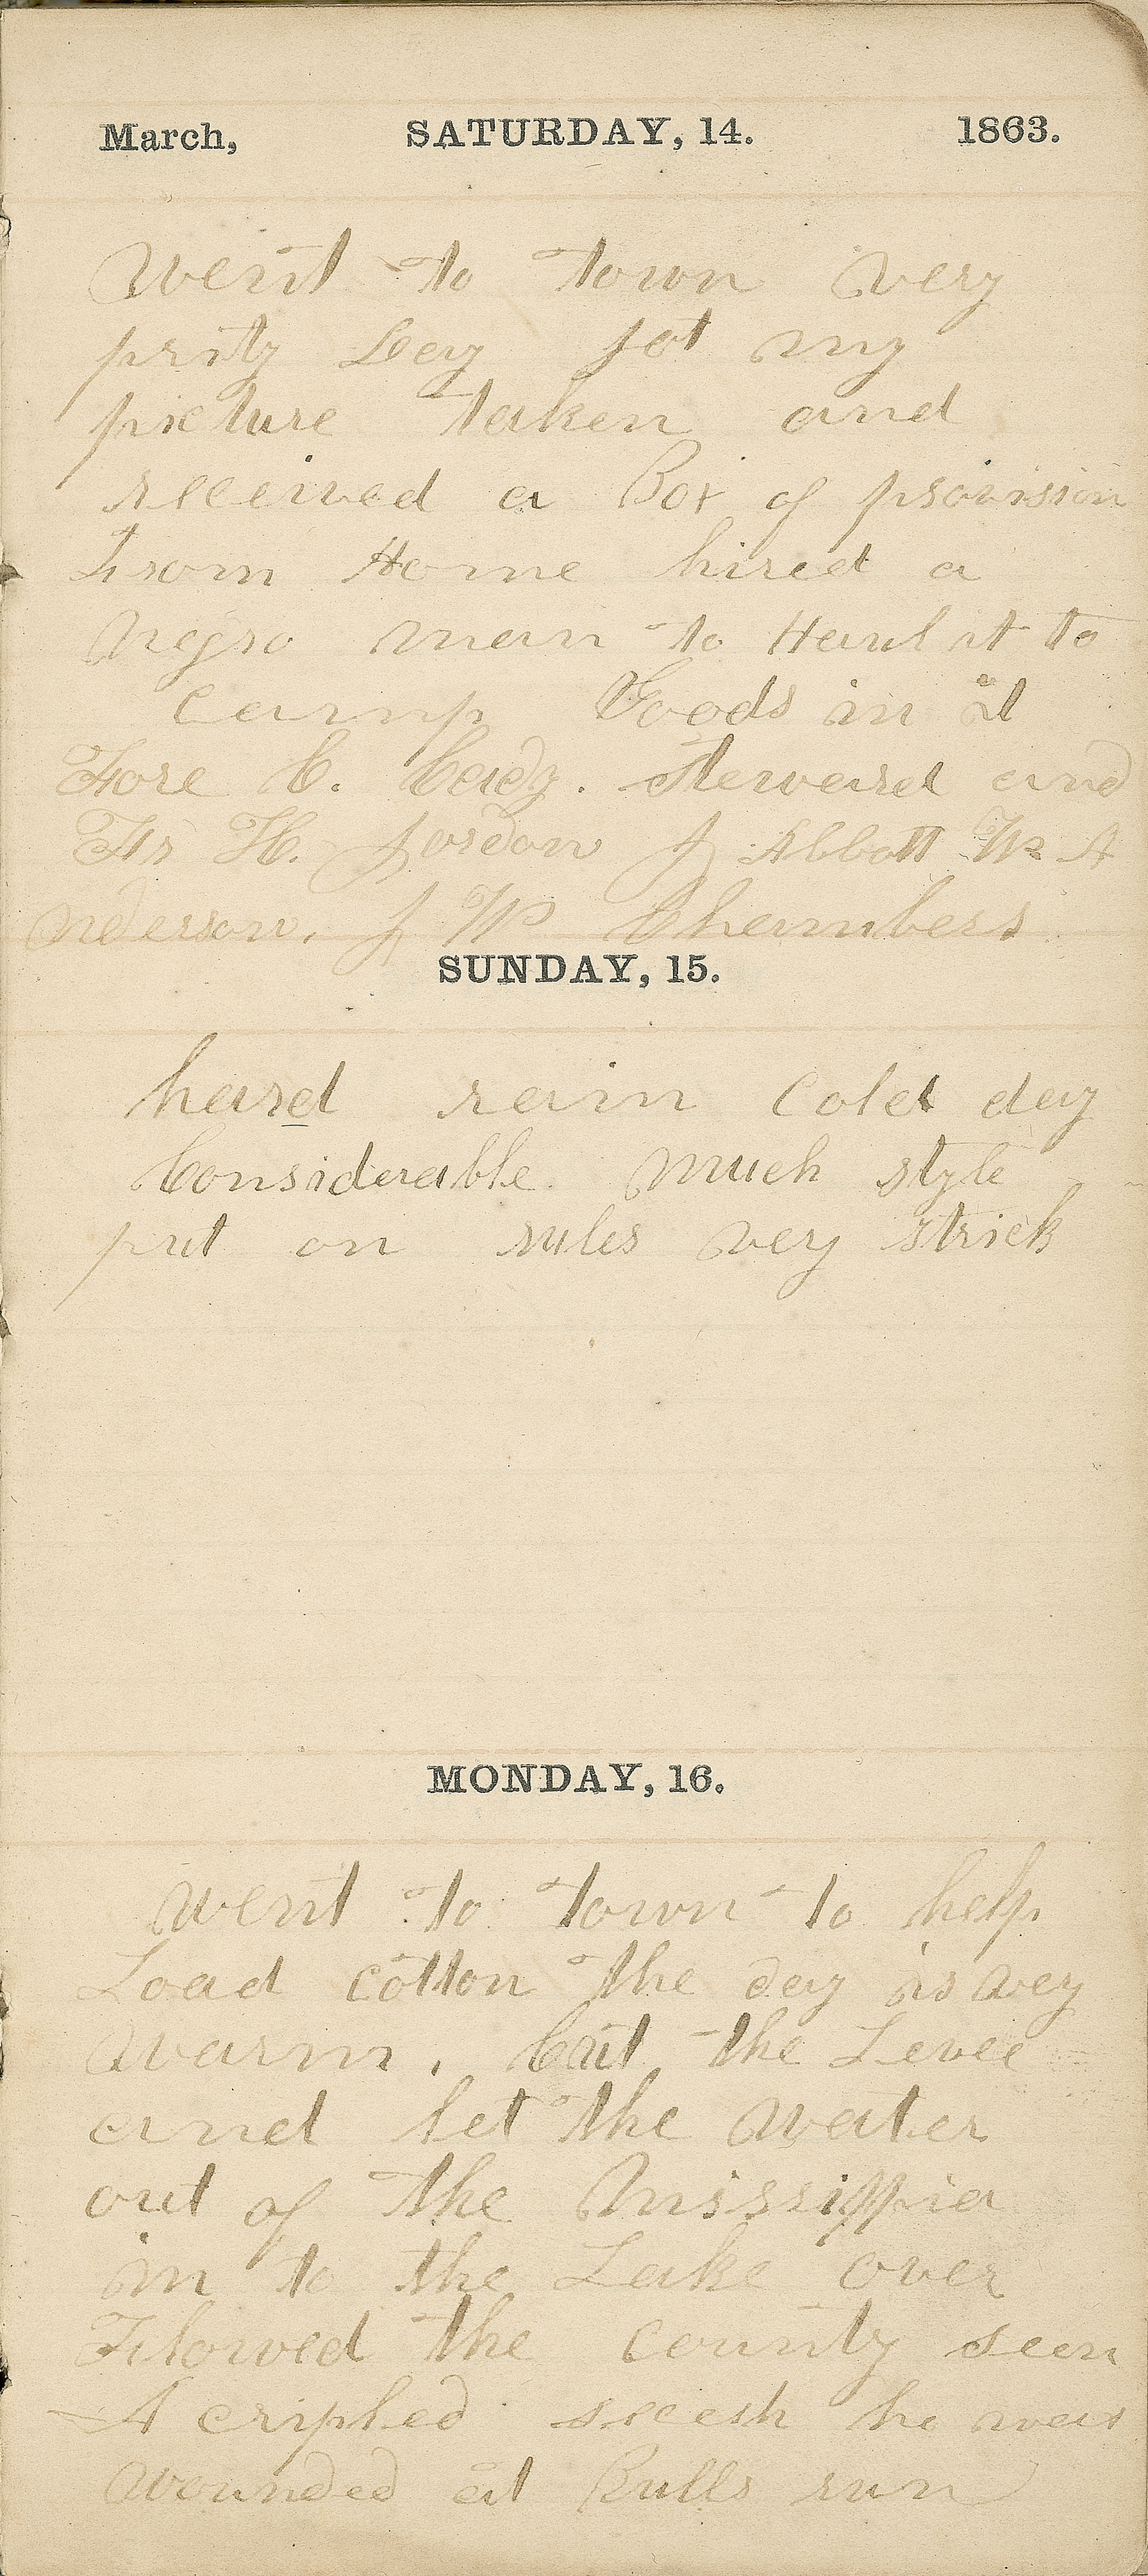 March, SATURDAY, 14. 1863.
Went to town very
prity Day got my
picture taken and
received a Box of provision
from Home hired a
Negro man to Haul it to
camp Goods in it
Fore C. Cady. Steward and
H. Jordon J Abbott Wm A
nderson. J W Chambers
SUNDAY, 15.
hard rain cold day
Considerable much style
put on rules very strick
MONDAY, 16.
Went to town to help
Load cotton the day is very
warm. Cut the Levee
and let the water
out of the Mississippia
in to the Lake over
Flowed the county seen
A cripled secesh he was
wounded at Bulls run